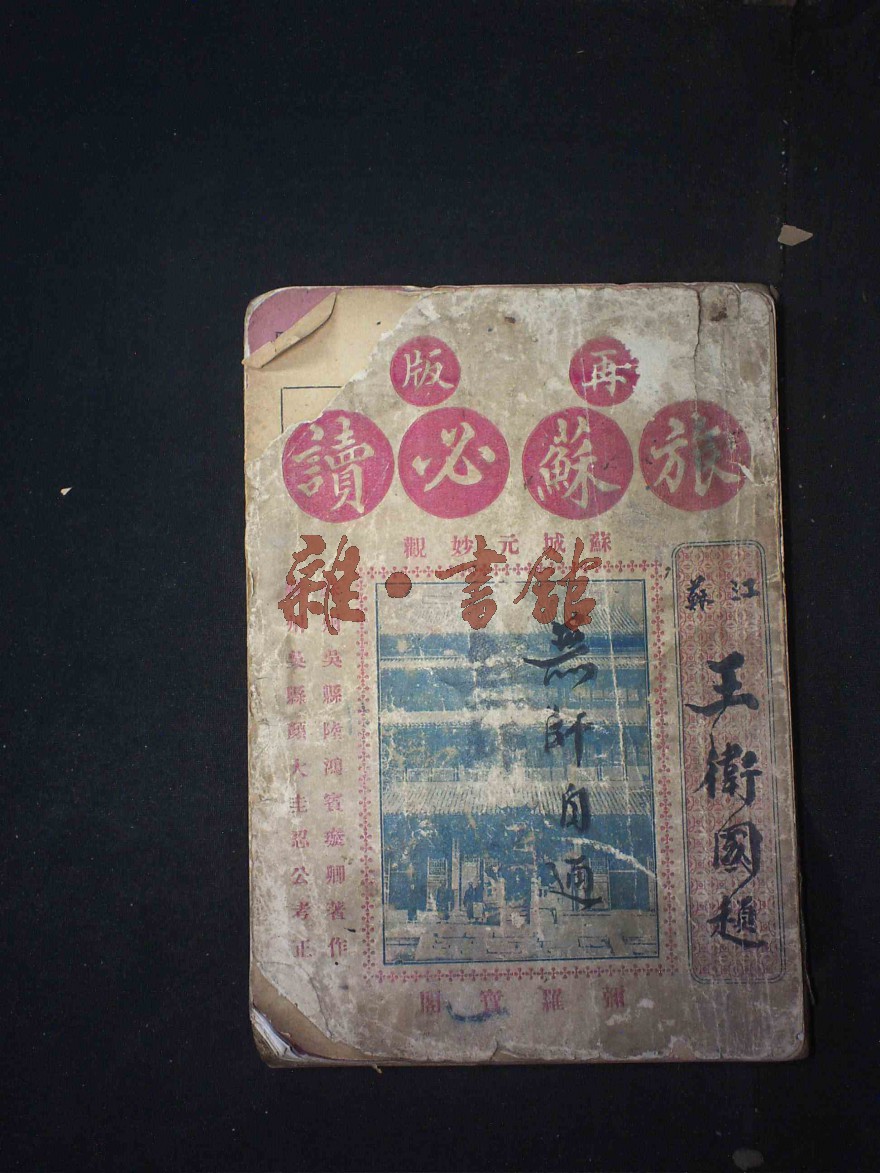 再版
旅蘇必讀
蘇城元妙觀
江蘇
王衛國題
無師自通
吳縣陸鴻賓璇卿著作
吳縣顏大圭忍公考正
彌羅寶閣
雜·書館